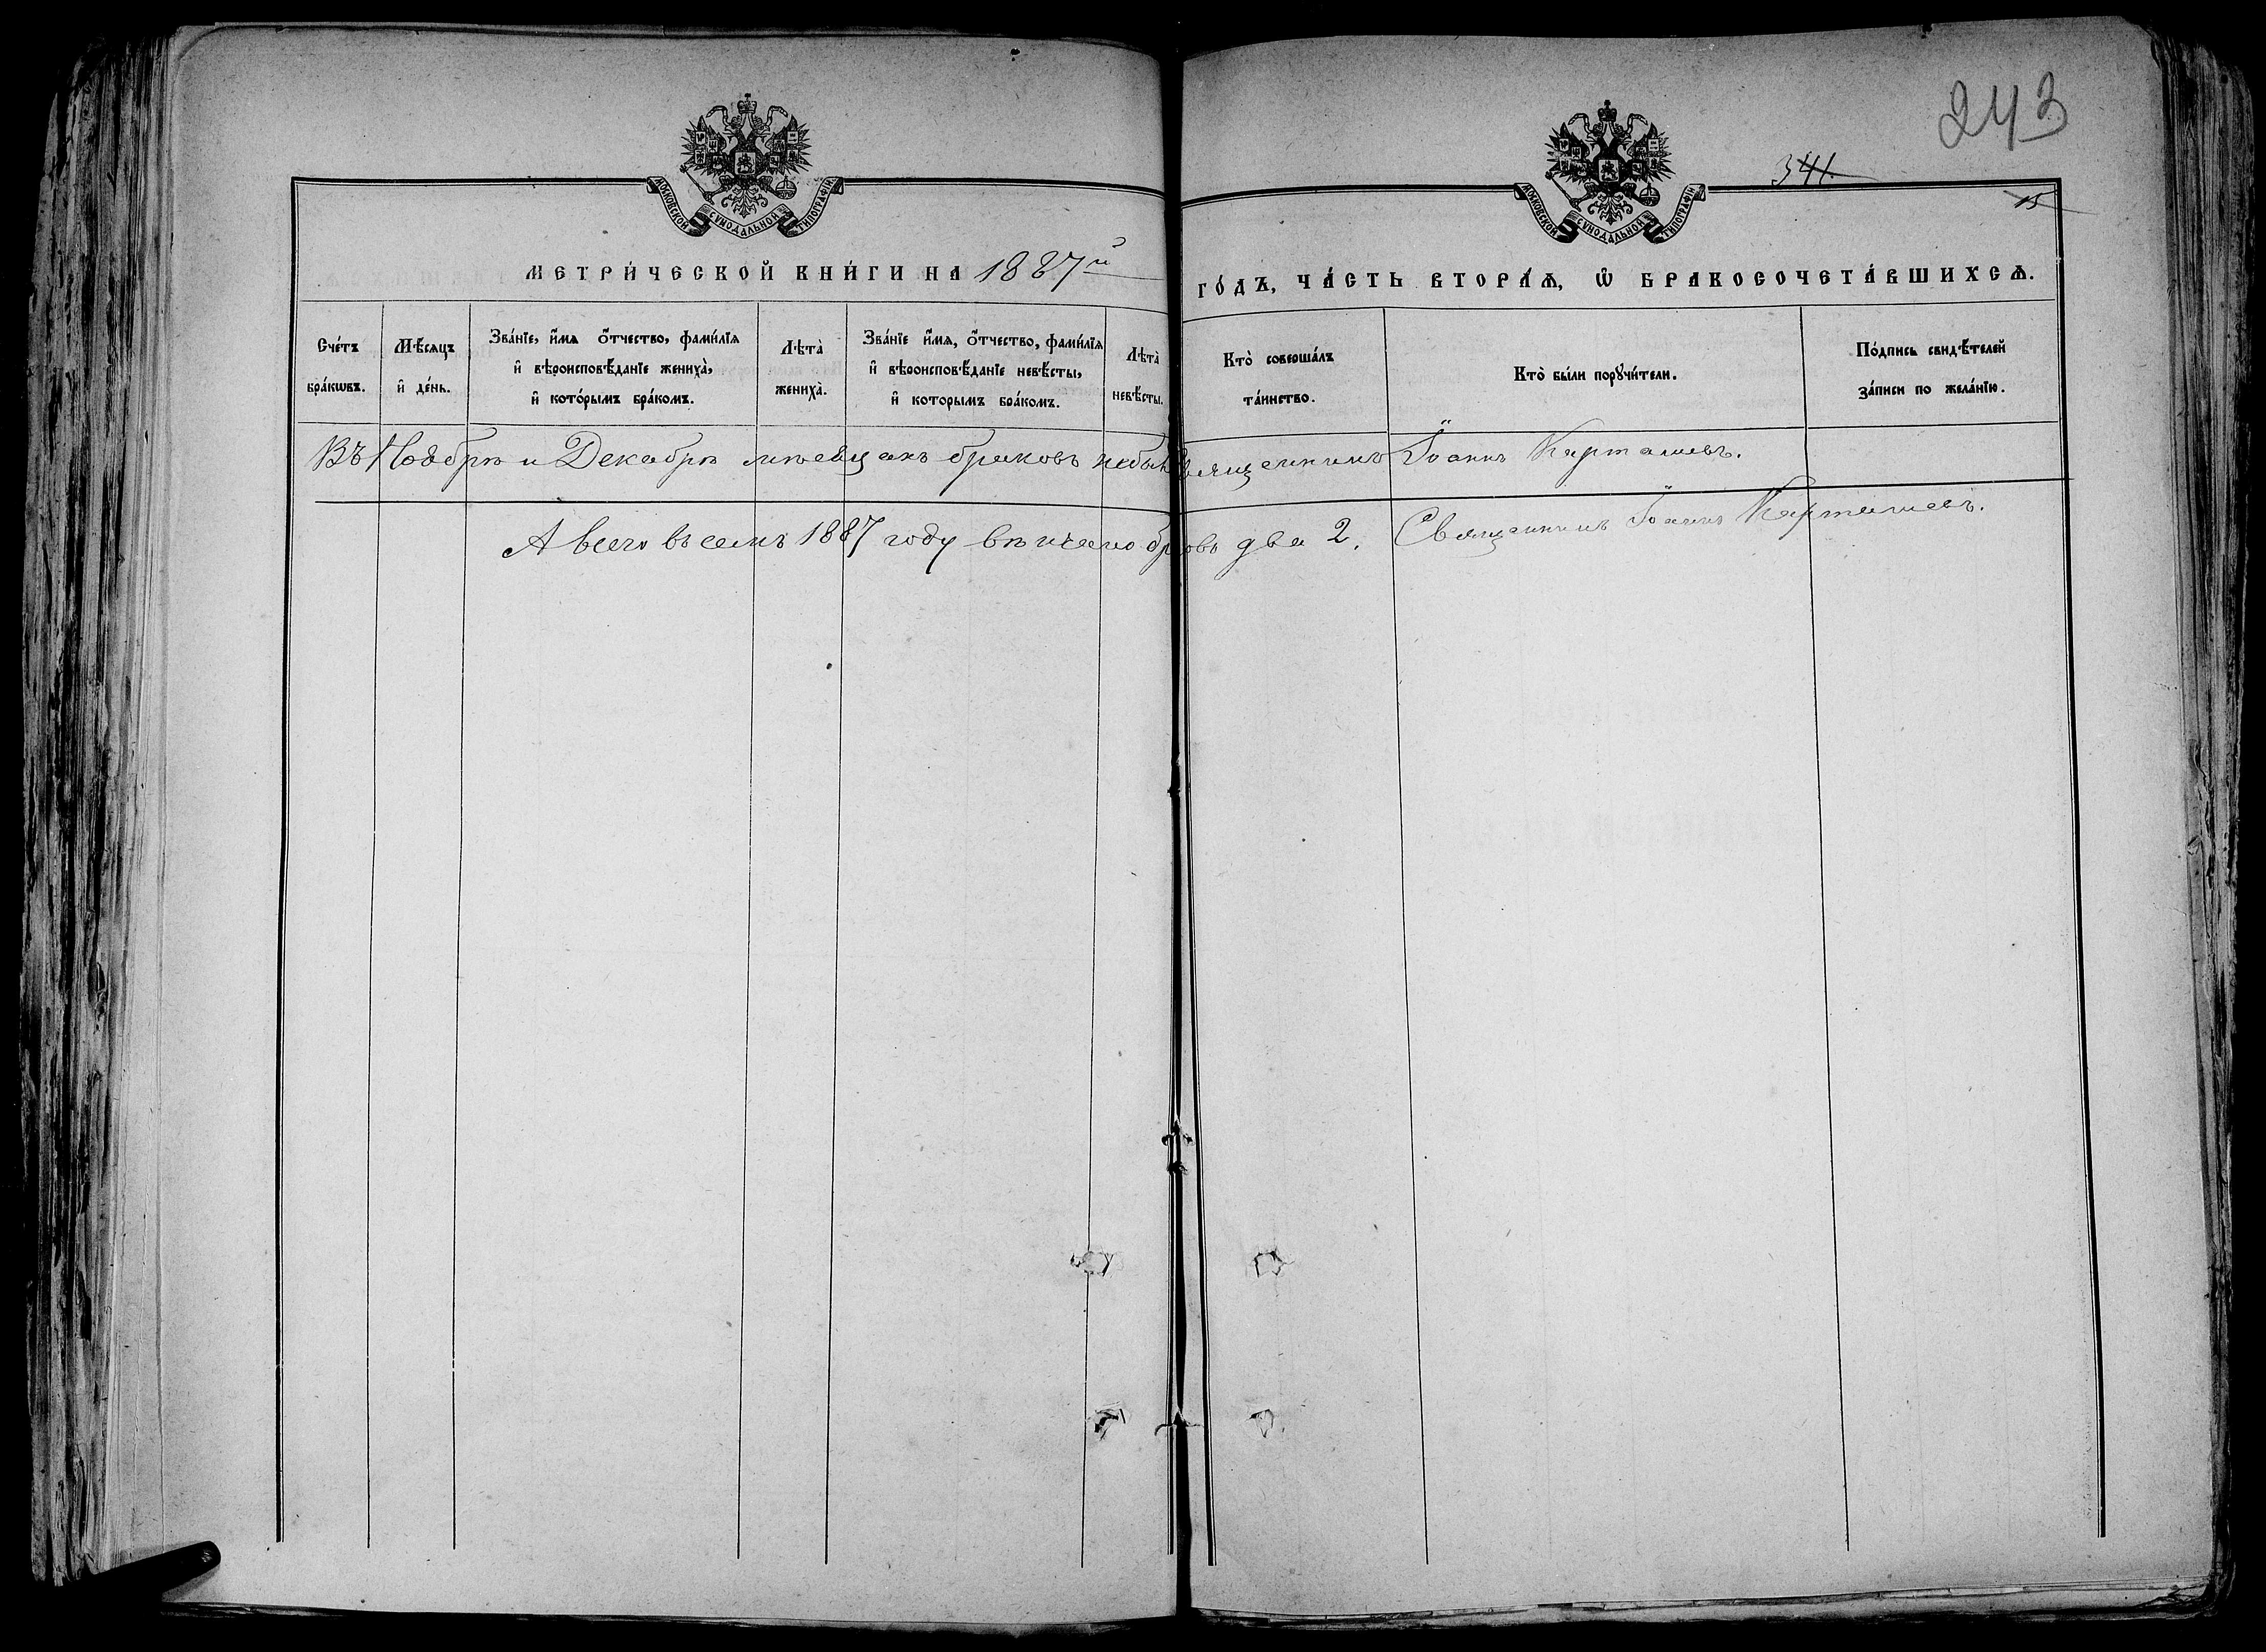 243
341
15
МОСКОВСКОЙ СѴНОДАЛЬНОЙ ТИПОГРАФІИ
МОСКОВСКОЙ СѴНОДАЛЬНОЙ ТИПОГРАФІИ
МЕТРИ́ЧЕСКОЙ КНИ́ГИ НА 1887й
ГО́ДЪ, ЧА́СТЬ ВТОРА́Ѧ, Ѽ БРАКОСОЧЕТА́ВШИХСѦ.
Сче́тъ
бра́кѡвъ.
Мѣ́сѧцъ
и҆ де́нь.
Зва́нїе, и҆́мѧ ѻ҆́тчество, фами́лїѧ
и҆ вѣроисповѣ́данїе жениха̀,
и҆ кото́рымъ бра́комъ.
Лѣта̀
жениха̀.
Зва́нїе и҆́мѧ, ѻ҆́тчество, фами́лїѧ
и҆ вѣроисповѣ́данїе невѣ́сты,
и҆ кото́рымъ бра́комъ.
Лѣта̀
невѣ́сты.
Кто̀ соверша́лъ
та́инство.
Кто̀ бы́ли порꙋчи́тели.
По́дпись свидѣ́телей
за́писи по жела́нїю.
Въ Ноябрѣ и Декабрѣ мѣсяцахъ браковъ небыл Священникъ Іоаннъ Карташевъ.
А всего въ семъ 1887 году вѣнчано бр овъ два 2. Священникъ Іоаннъ Карташевъ.